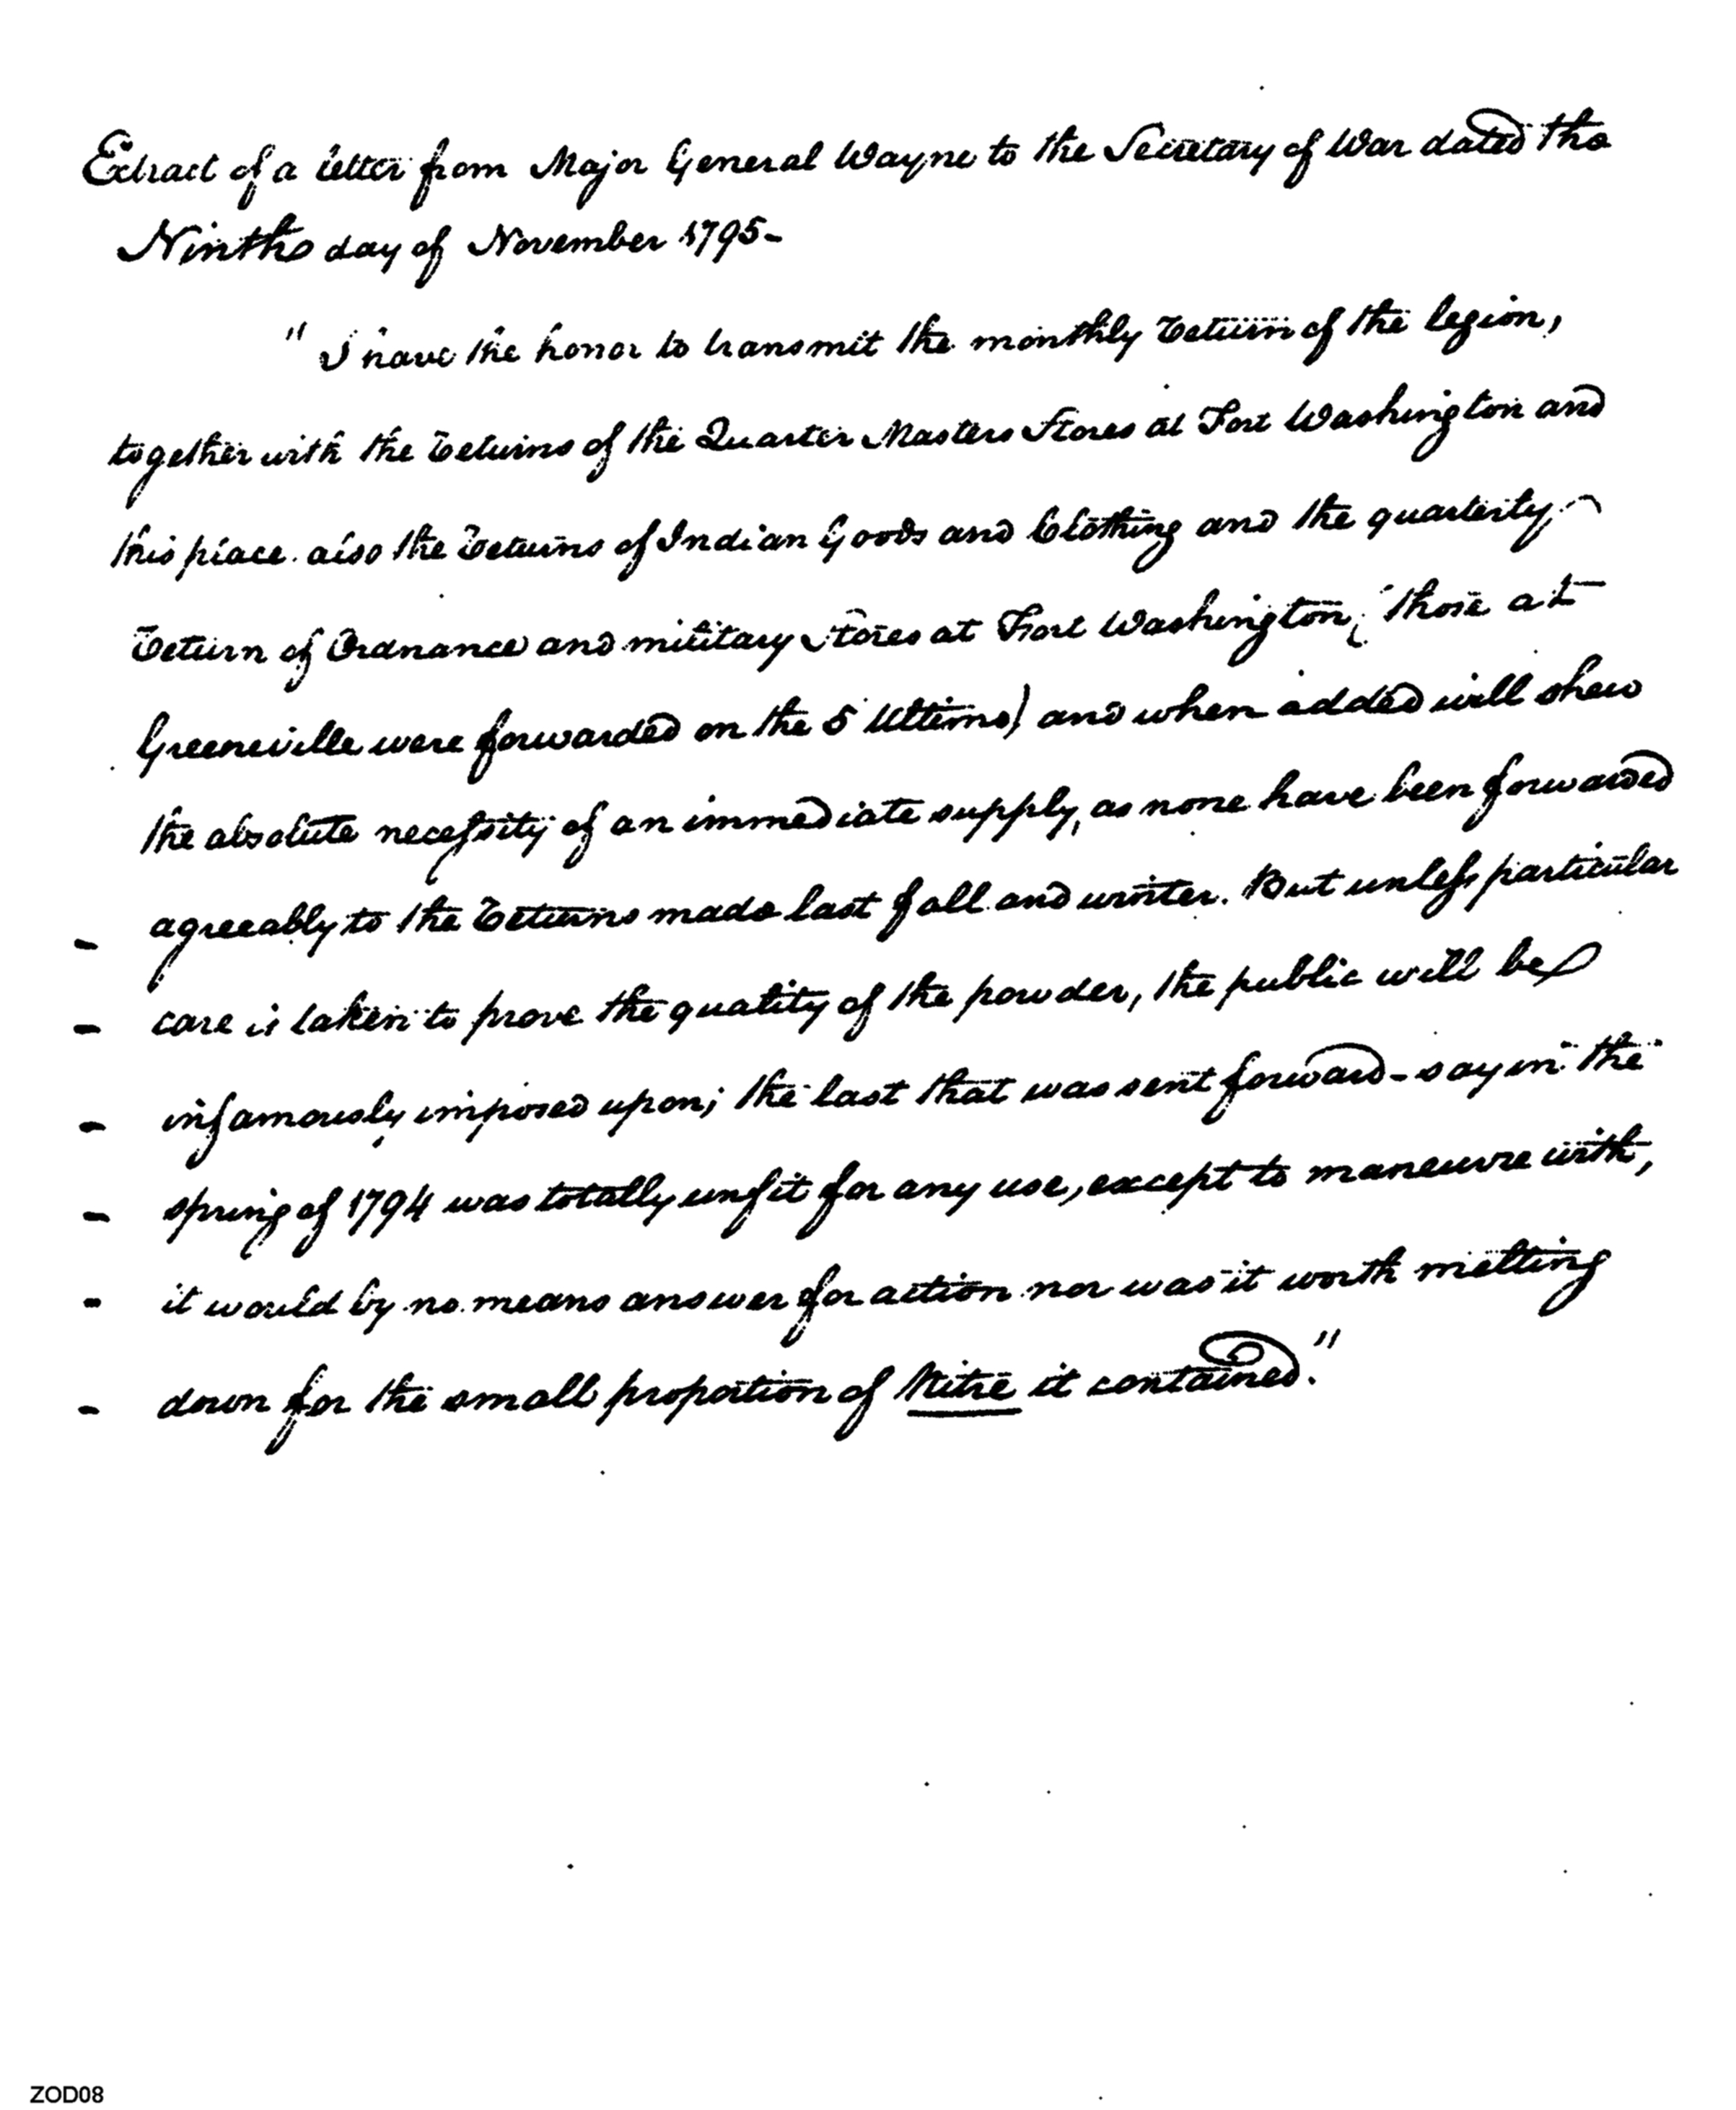 Extract of a letter from Major General Wayne to the Secretary of War dated the
Ninth day of November 1795-
"I have the honor to transmit the monthly return of the legion,
together with the returns of the Quarter Masters Stores at Fort Washington and
this place. also the returns of Indian Goods and Clothing and the quarterly
return of Ordnance and military Stores at Fort Washington, (those at
Greeneville were forwarded on the 5 Ultimo) and when added will shew
the absolute necessity of an immediate supply, as none have been forwarded
- agreeably to the returns made last fall and winter. But unless particular
- care is taken to prove the quality of the powder, the public will be
- infamously imposed upon; the last that was sent forward - say in the
- spring of 1794 was totally unfit for any use, except to maneuvre with,
- it would by no means answer for action nor was it worth melting
- down for the small proportion of Nitre it contained."
ZOD08